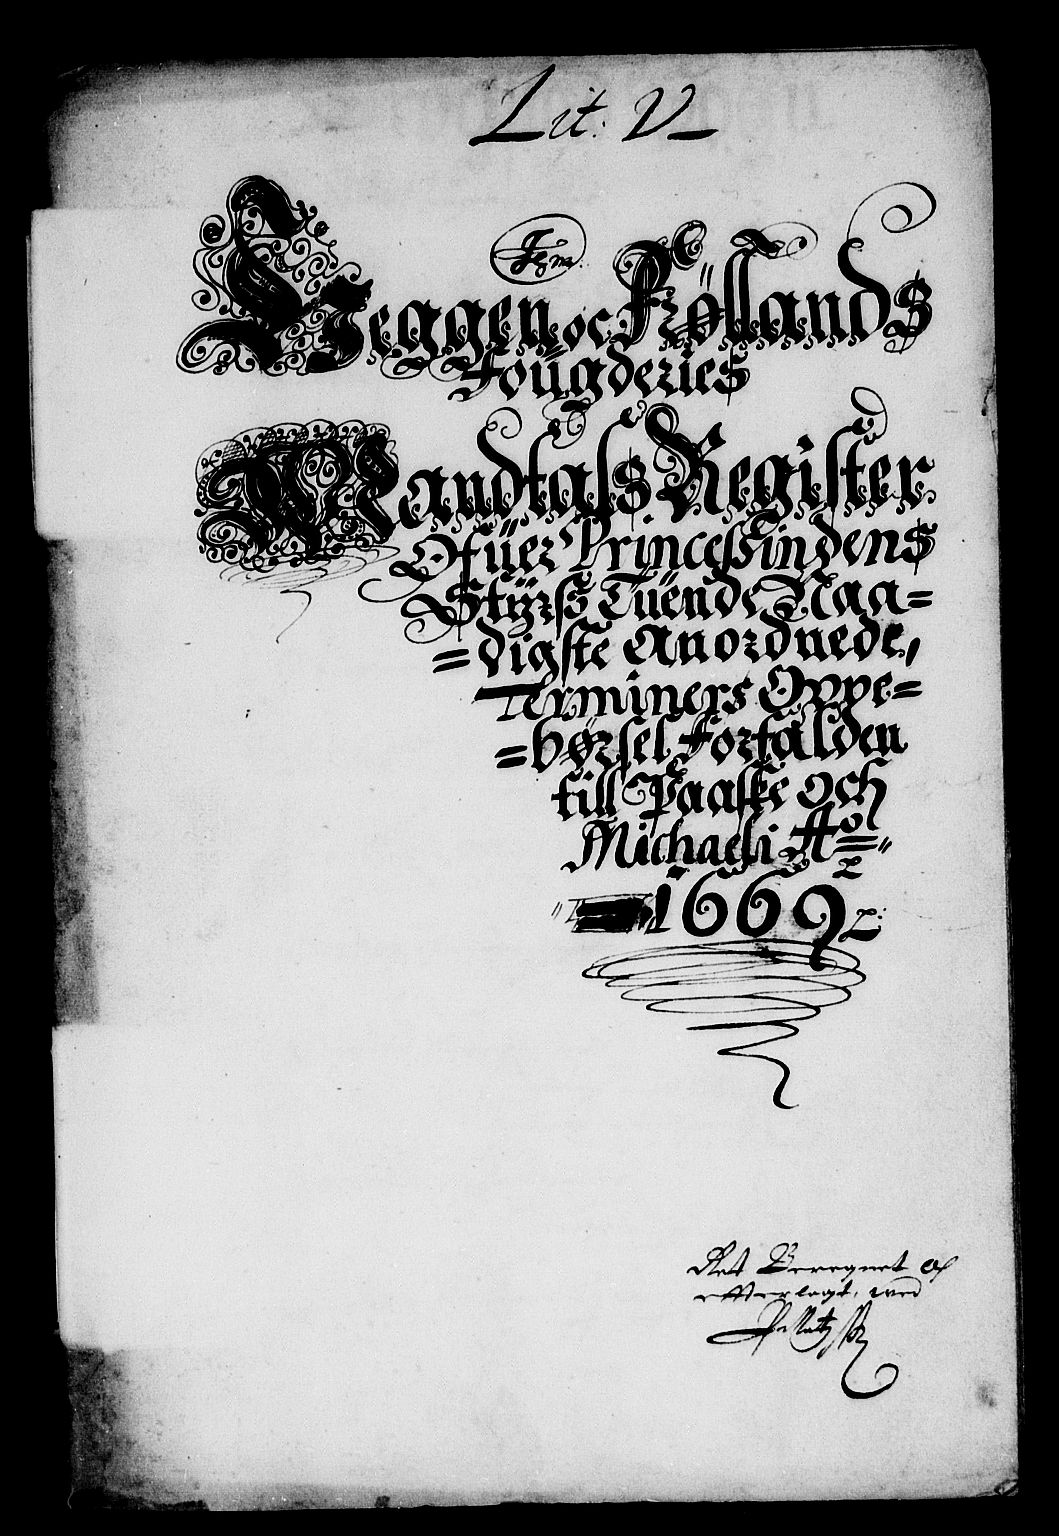 Lit: V
Heggen oc Frölands
Foügderies
Mandtalß Register
Ofüer Princeßindens
Stÿrß Tüende Naa=
=digste Anordnede,
Terminers Oppe=
=børsel Forfalden
till Paaske och
Michaeli Ao
1669
Ret Beregnet och
efterlagt, wed